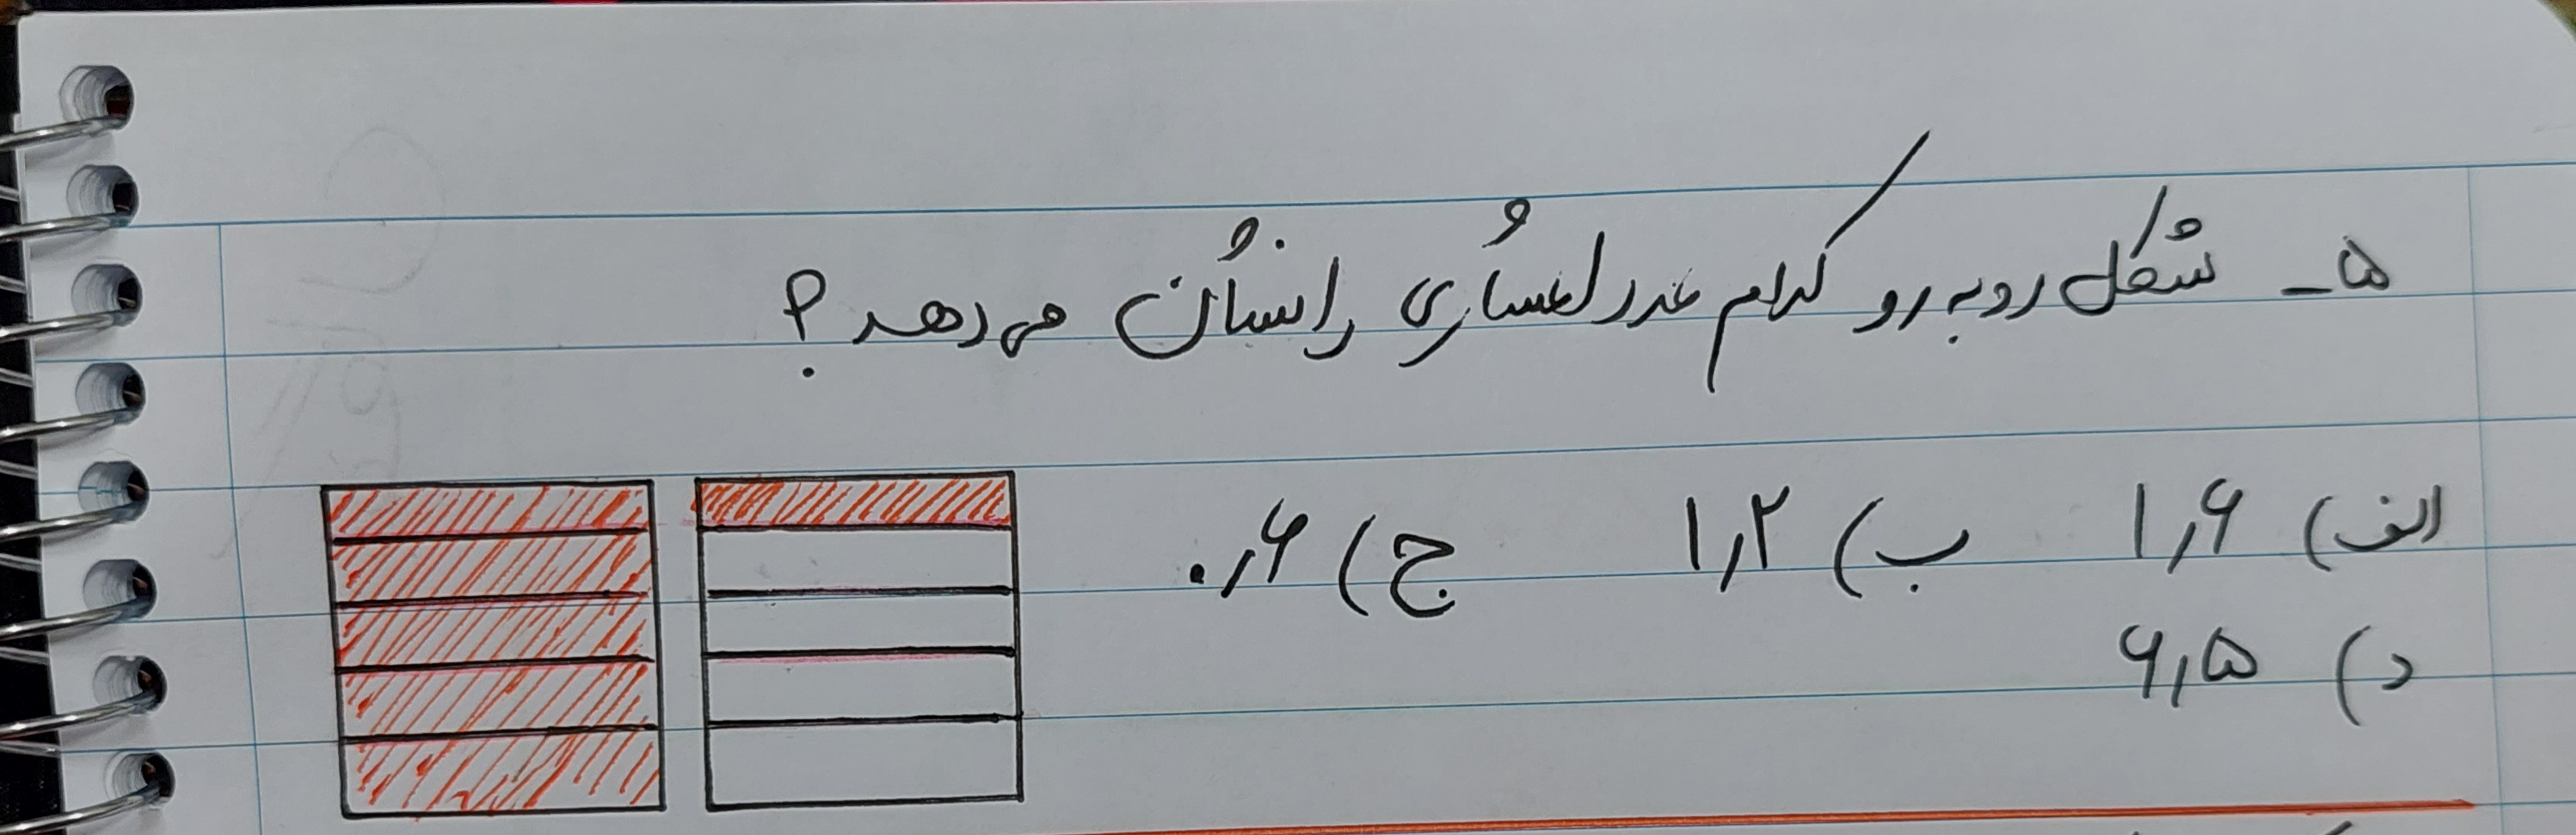 ۵- شکل روبه رو کدام عدد اعشاری را نشان می دهد؟
الف) ۱٫۶ ب) ۱٫۲ ج) ۰٫۶
د) ۶٫۵